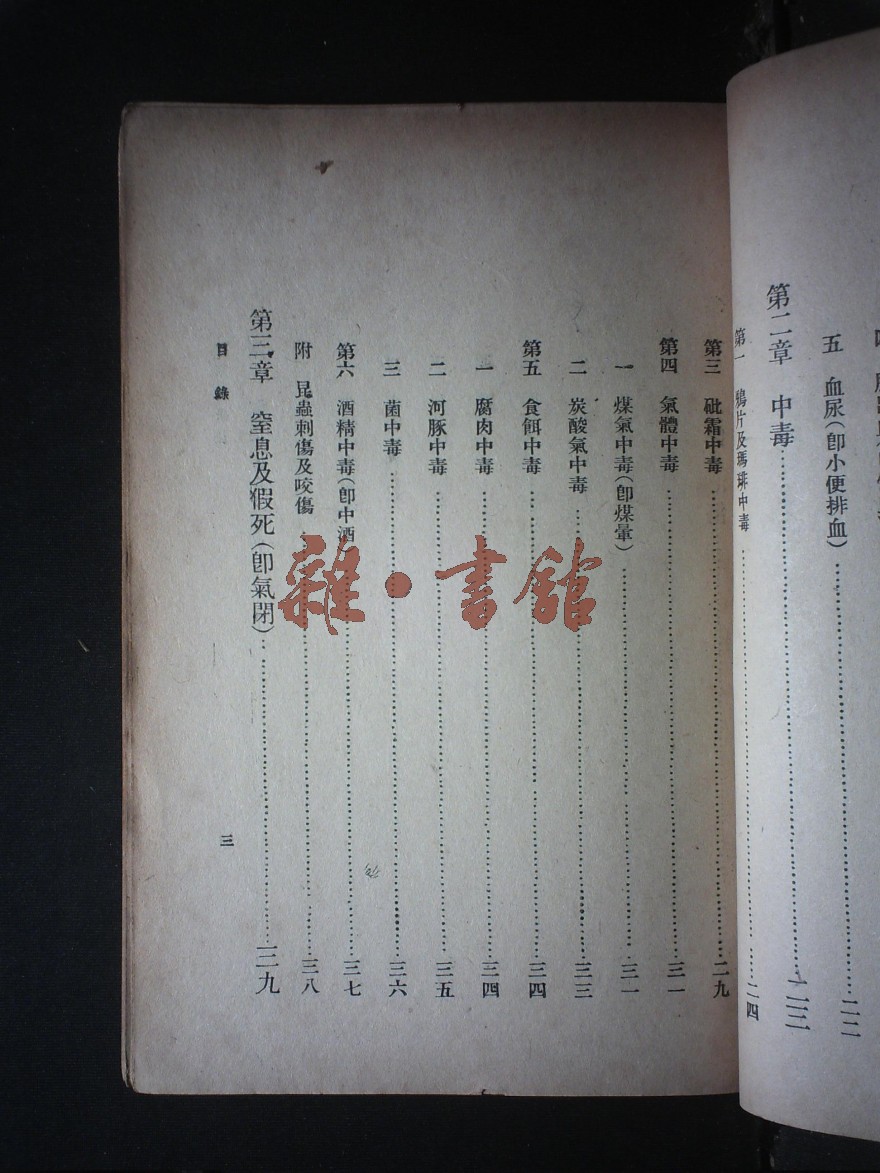 五 血尿(卽小便排血)……二二
第二章 中毒……二三
第一 鴉片及瑪琲中毒……二四
第三 砒霜中毒……二九
第四 氣體中毒……三一
一 煤氣中毒(卽煤暈)……三一
二 炭酸氣中毒……三三
第五 食餌中毒……三四
一 腐肉中毒……三四
二 河豚中毒……三五
三 菌中毒……三六
第六 酒精中毒(卽中酒……三七
附 昆蟲刺傷及咬傷……三八
第三章 窒息及假死(卽氣閉)……三九
目錄
三
雜·書館